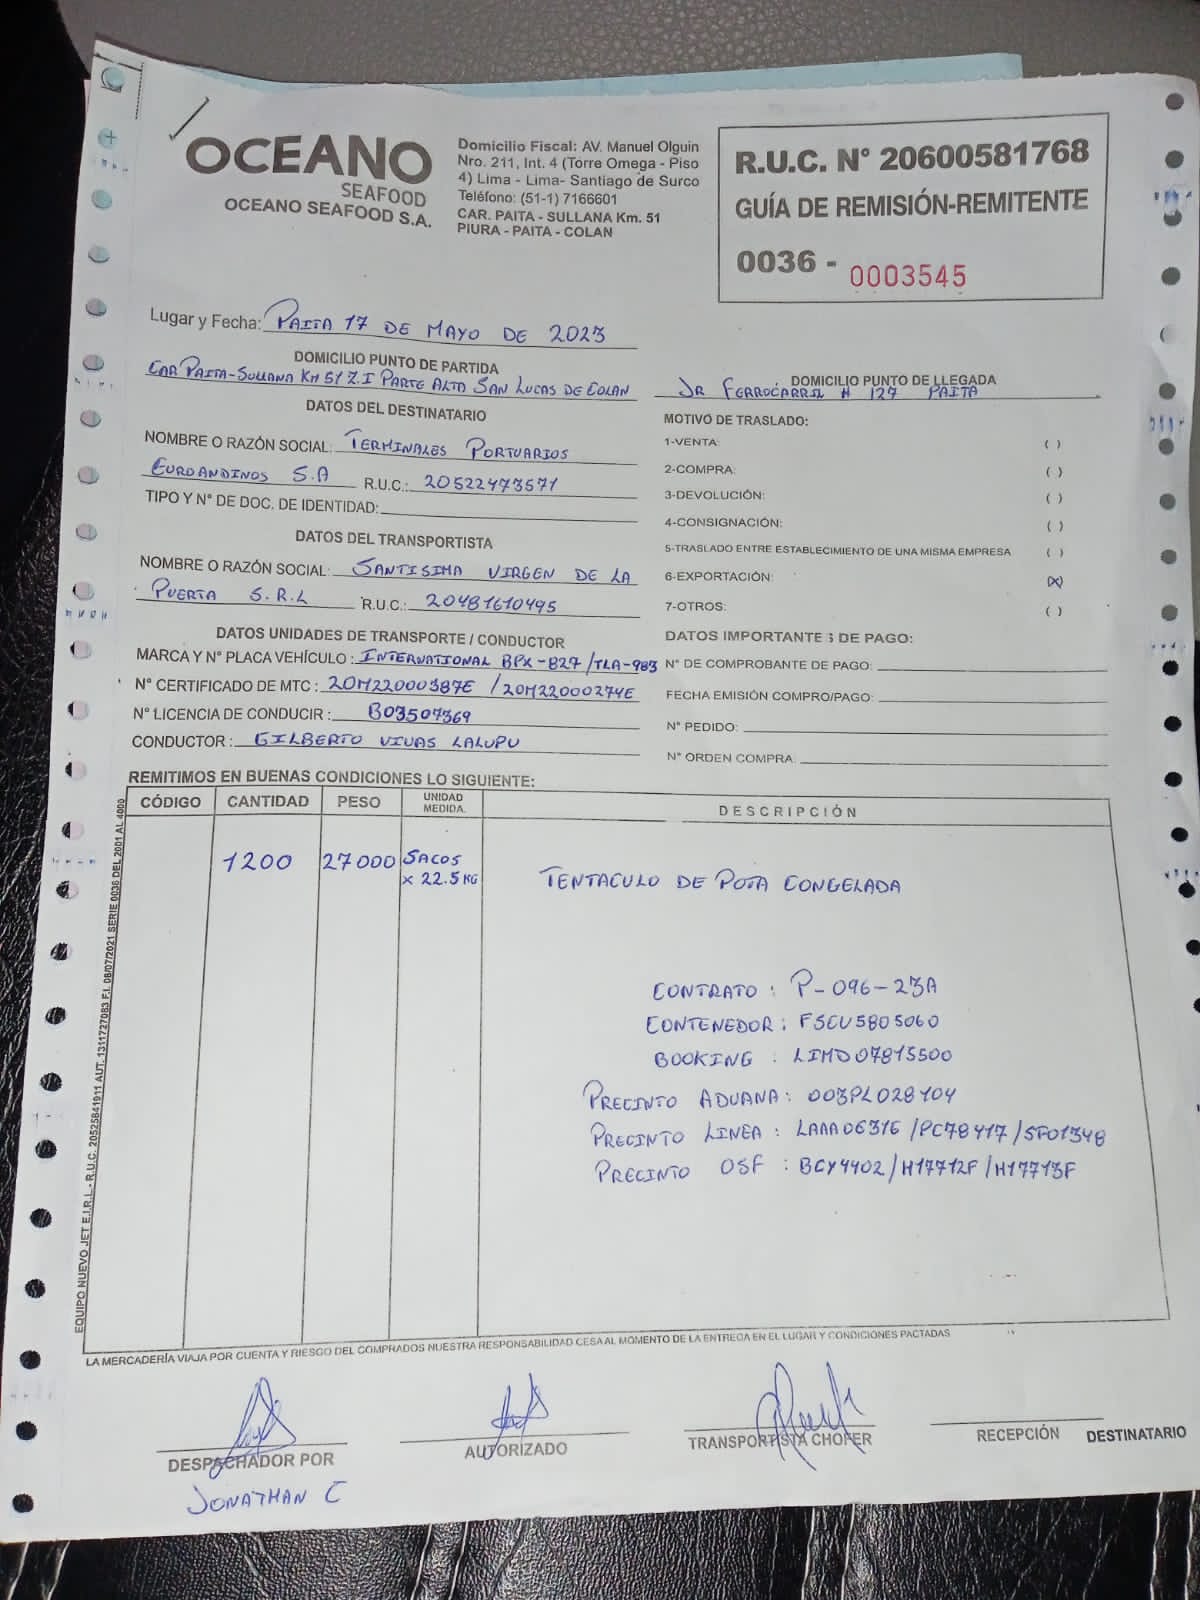 OCEANO
SEAFOOD
OCEANO SEAFOOD S.A.
Domicilio Fiscal: AV. Manuel Olguin
Nro. 211, Int. 4 (Torre Omega - Piso
4) Lima - Lima- Santiago de Surco
Teléfono: (51-1) 7166601
CAR. PAITA - SULLANA Km. 51
PIURA - PAITA - COLAN
R.U.C. N° 20600581768
GUÍA DE REMISIÓN-REMITENTE
0036 - 0003545
Lugar y Fecha: PAITA 17 DE MAYO DE 2023
DOMICILIO PUNTO DE PARTIDA
CAR PAITA-SULLANA KM 51 Z.I PARTE ALTA SAN LUCAS DE COLAN
DOMICILIO PUNTO DE LLEGADA
JR FERROCARRIL # 127 PAITA
DATOS DEL DESTINATARIO
NOMBRE O RAZÓN SOCIAL: TERMINALES PORTUARIOS
EUROANDINOS S.A R.U.C.: 20522473571
TIPO Y N° DE DOC. DE IDENTIDAD:
DATOS DEL TRANSPORTISTA
NOMBRE O RAZÓN SOCIAL: SANTISIMA VIRGEN DE LA
PUERTA S.R.L R.U.C.: 20481610495
DATOS UNIDADES DE TRANSPORTE / CONDUCTOR
MARCA Y N° PLACA VEHÍCULO: INTERNATIONAL BPK-827/TLA-983
N° CERTIFICADO DE MTC: 20M22000387E / 20M22000274E
N° LICENCIA DE CONDUCIR: B03507369
CONDUCTOR: GILBERTO VIVAS LALUPU
MOTIVO DE TRASLADO:
1-VENTA: ( )
2-COMPRA: ( )
3-DEVOLUCIÓN: ( )
4-CONSIGNACIÓN: ( )
5-TRASLADO ENTRE ESTABLECIMIENTO DE UNA MISMA EMPRESA ( )
6-EXPORTACIÓN: (X)
7-OTROS: ( )
DATOS IMPORTANTES DE PAGO:
N° DE COMPROBANTE DE PAGO:
FECHA EMISIÓN COMPRO/PAGO:
N° PEDIDO:
N° ORDEN COMPRA:
REMITIMOS EN BUENAS CONDICIONES LO SIGUIENTE:
CÓDIGO CANTIDAD PESO UNIDAD MEDIDA. DESCRIPCIÓN
1200 27000 SACOS
x 22.5 KG
TENTACULO DE POTA CONGELADA
CONTRATO : P-096-23A
CONTENEDOR: FSCU5805060
BOOKING : LIMD07815500
PRECINTO ADUANA: 003PL028104
PRECINTO LINEA : LAAA06316/PC78417/SF01348
PRECINTO OSF : BCY4402/H17712F/H17713F
EQUIPO NUEVO JET E.I.R.L.- R.U.C. 20525841911 AUT. 1311727083 F.I. 08/07/2021 SERIE 0036 DEL 2001 AL 4000
LA MERCADERÍA VIAJA POR CUENTA Y RIESGO DEL COMPRADOS NUESTRA RESPONSABILIDAD CESA AL MOMENTO DE LA ENTREGA EN EL LUGAR Y CONDICIONES PACTADAS
DESPACHADOR POR
JONATHAN C
AUTORIZADO
TRANSPORTISTA CHOFER
RECEPCIÓN DESTINATARIO